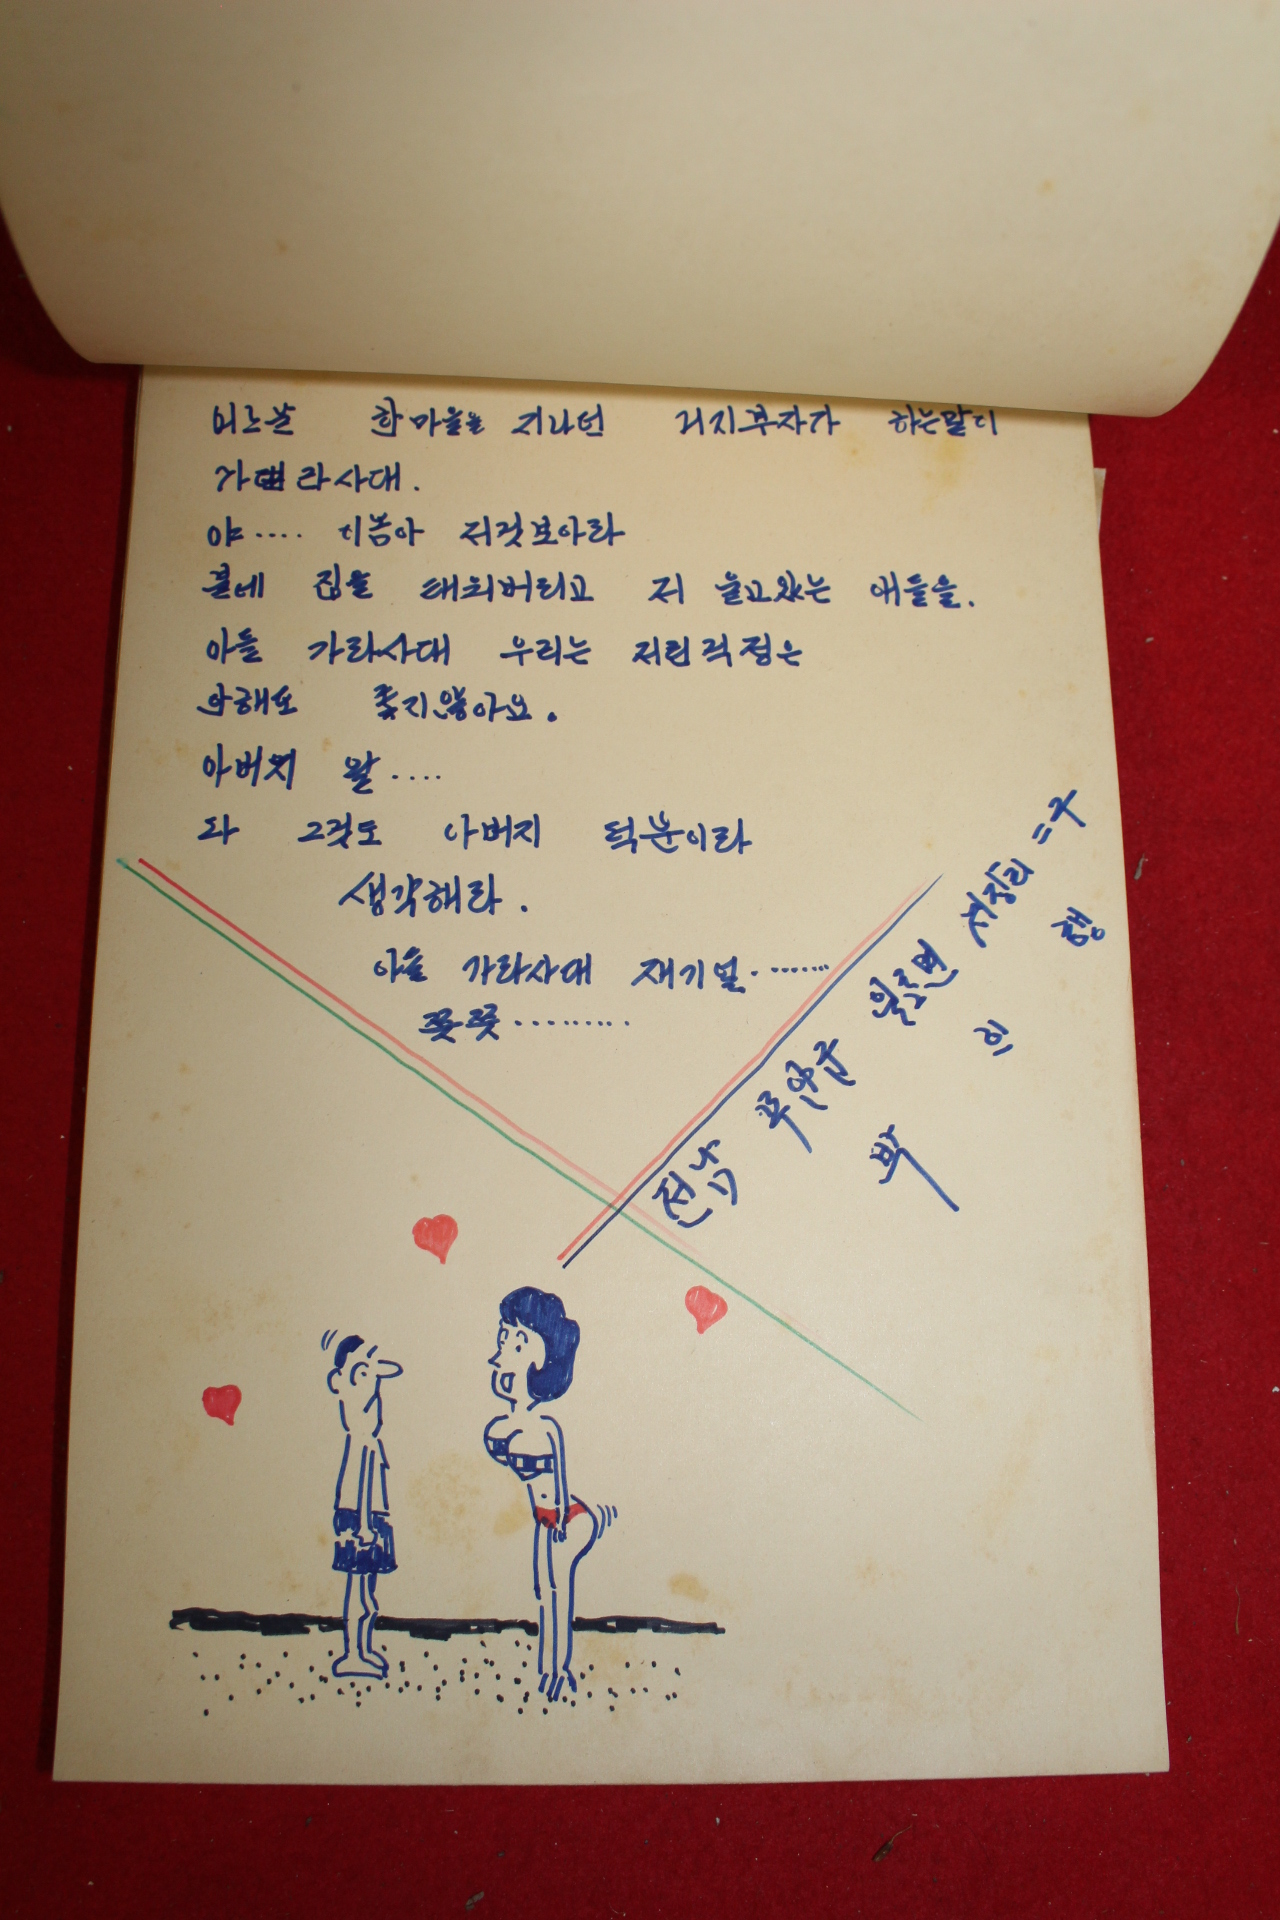 어느날 한마을을 지나던 거지부자가 하는말이
가라사대.
야.... 이놈아 저것보아라
불에 집을 태워버리고 저 울고있는 애들을.
아들 가라사대 우리는 저런걱정은
안해도 좋지않아요.
아버지 왈....
다 그것도 아버지 덕분이라
생각해라.
아들 가라사대 재기럴.......
쯧쯧.........
전남 무안군 일로면 리 二구
박 희 행